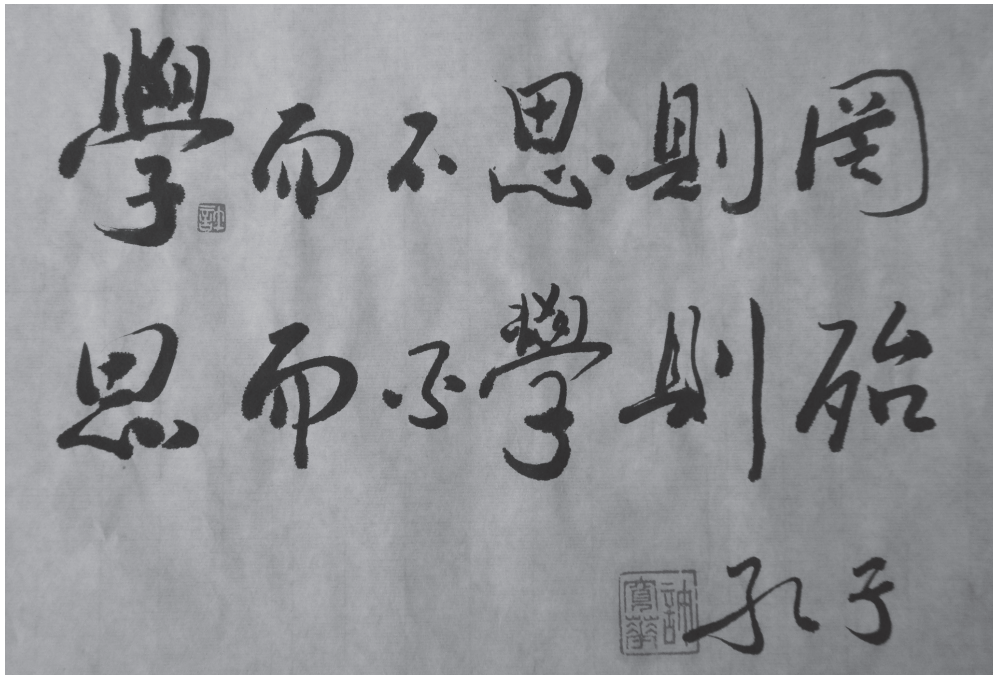 學而不思則罔
思而不學則殆
孔子